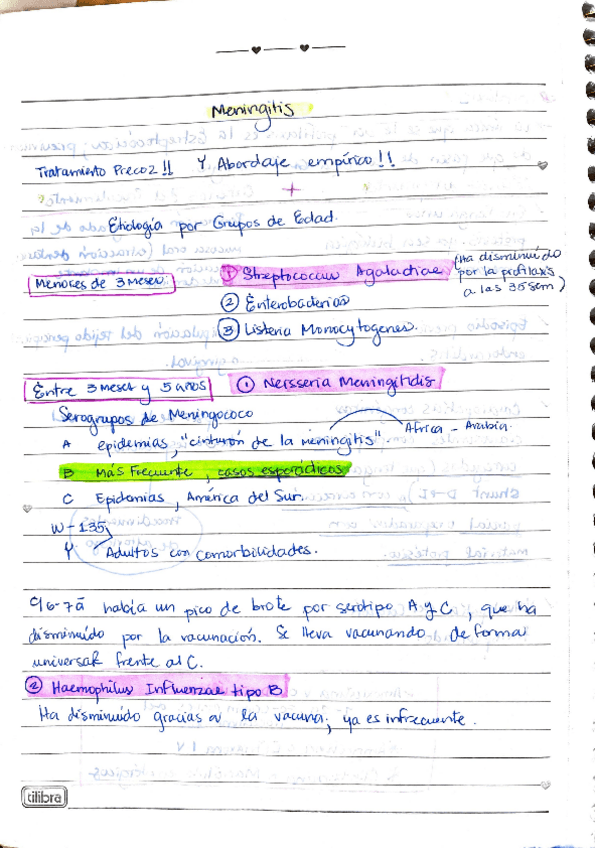 Meningitis
Tratamiento Precoz!! Y Abordaje empírico!!
+
Etiología por Grupos de Edad.
Menores de 3 meses
① Streptococcus Agalactiae (Ha disminuido por la profilaxis a las 35 sem)
② Enterobacterias
③ Listeria Monocytogenes.
Entre 3 meses y 5 años
① Neisseria Meningitidis
Serogrupos de Meningococo
A epidemias, "cinturón de la meningitis". África - Arabia.
B Más Frecuente, casos esporádicos
C Epidemias, América del Sur.
W-135
Y Adultos con comorbilidades.
C/6-7a había un pico de brote por serotipo A y C, que ha
disminuido por la vacunación. Se lleva vacunando de forma
universal frente al C.
② Haemophilus Influenzae tipo B
Ha disminuido gracias a la vacuna, ya es infrecuente.
tilibra